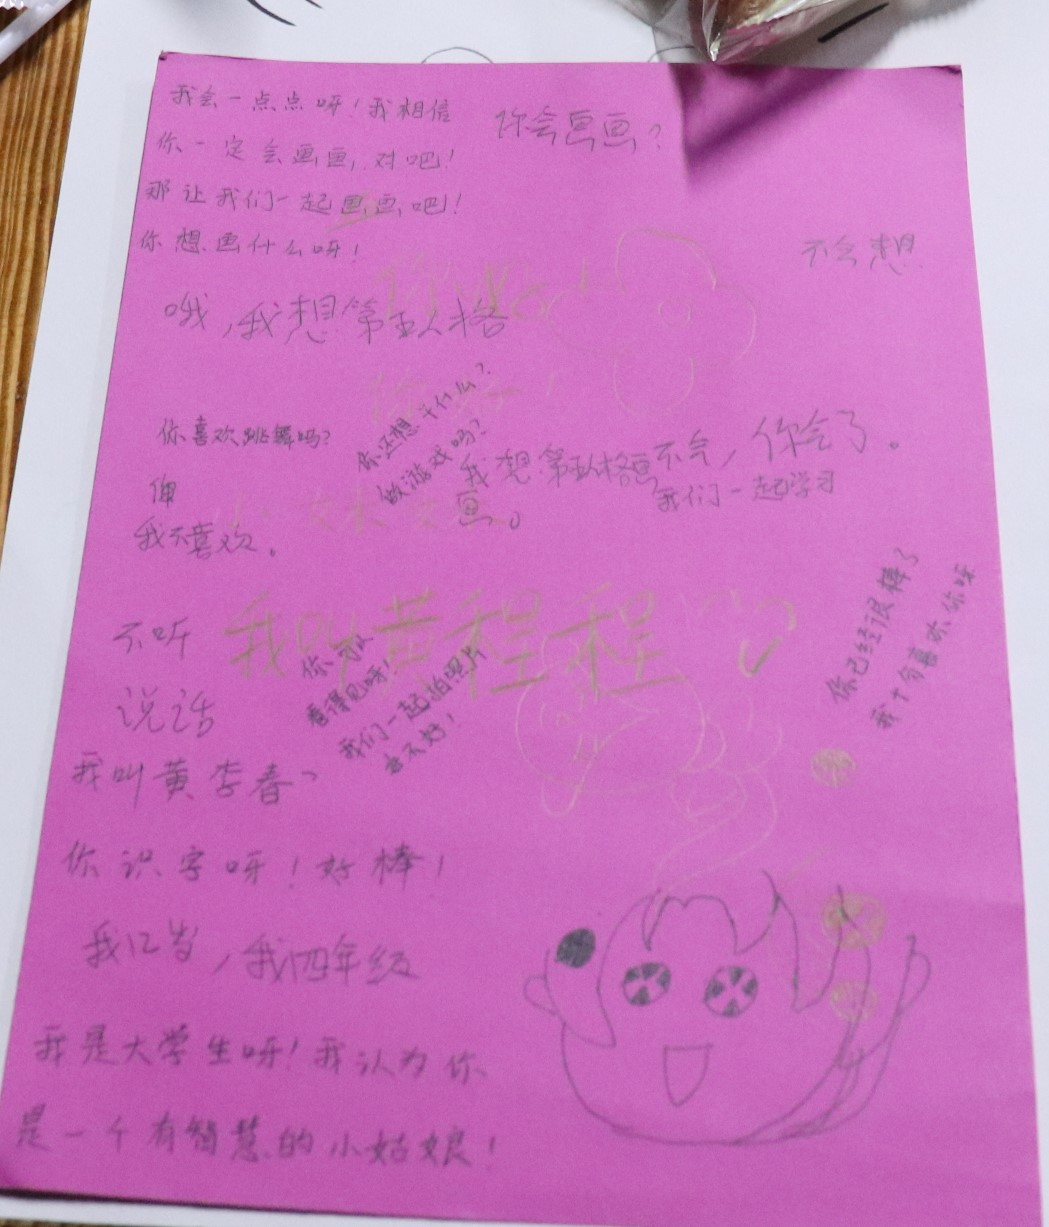 我会一点点呀！我相信
你会画画？
你一定会画画，对吧！
那让我们一起画画吧！
你想画什么呀！
不会想
你好！
哦，我想第五人格
你好！
你喜欢跳舞吗？
你还想干什么？
做游戏吗？
我想第五人格画
画。
不会，你会了。
我们一起学习
我不喜欢。
你已经很棒了
我十分喜欢你呀
不听
说话
我叫黄程程
看得见呀！
我们一起拍照片
好不好！
我叫黄李春
你识字呀！好棒！
我12岁，我四年级
我是大学生呀！我认为你
是一个有智慧的小姑娘！